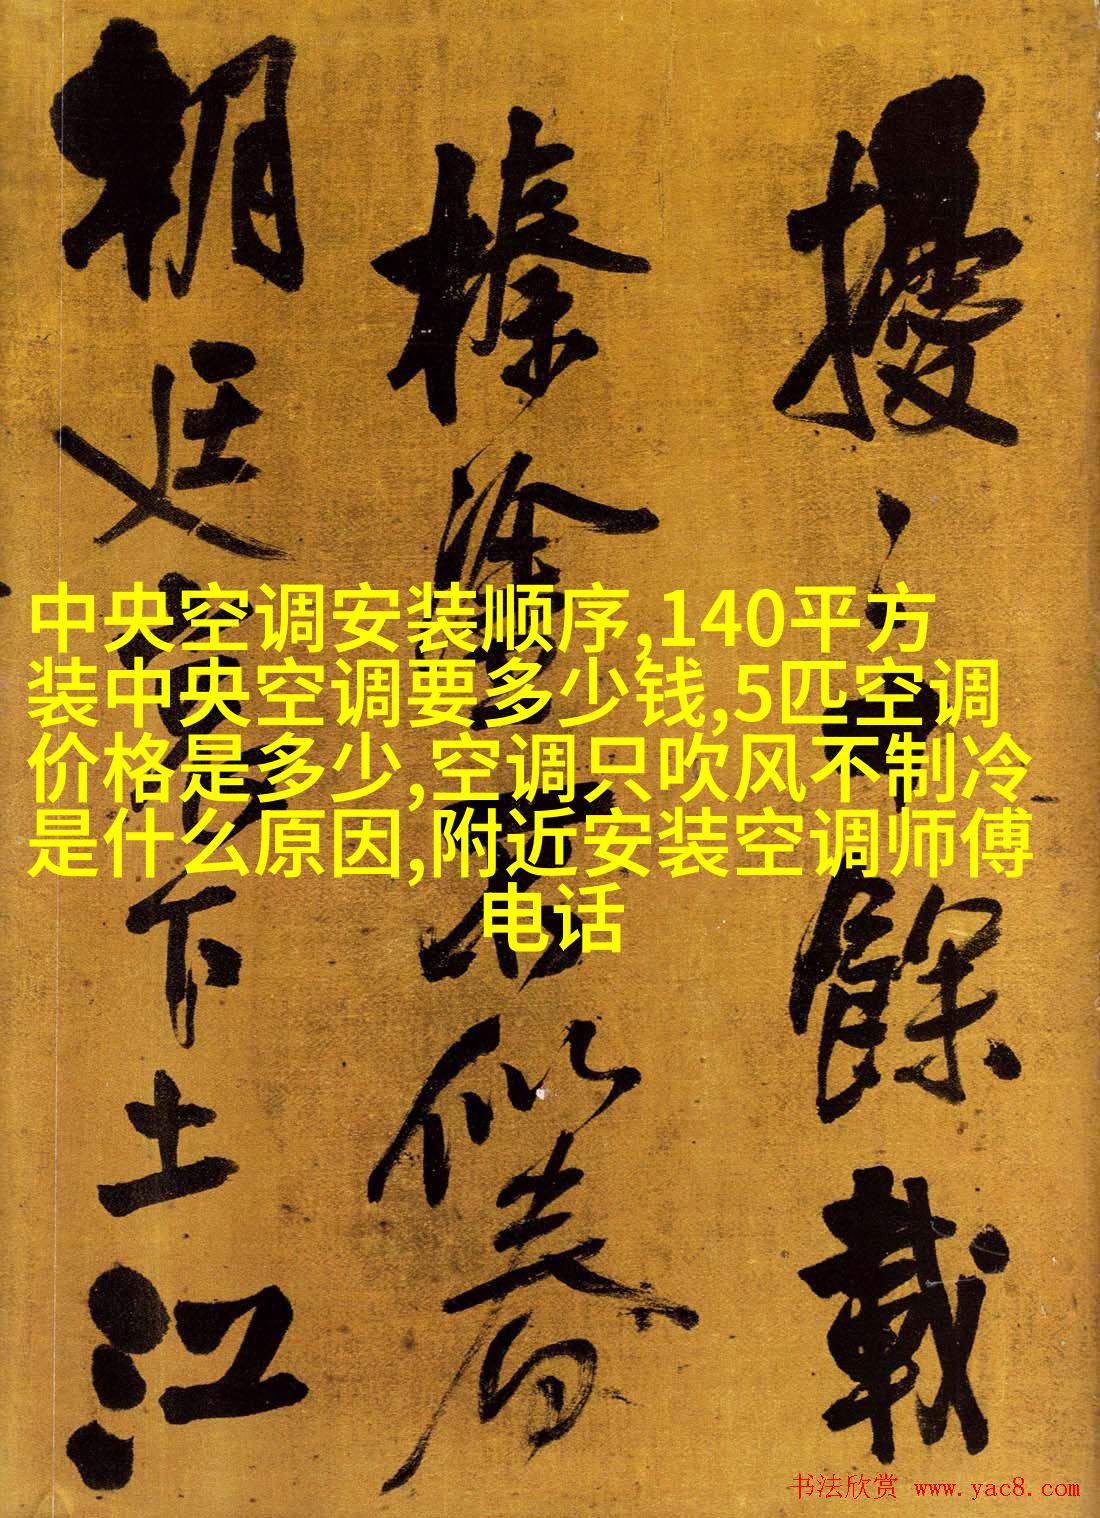 中央空调安装顺序,140平方
装中央空调要多少钱,5匹空调
价格是多少,空调只吹风不制冷
是什么原因,附近安装空调师傅
电话
擾之餘載
榛塗
朝廷下土江
书法欣赏 www.yac8.com